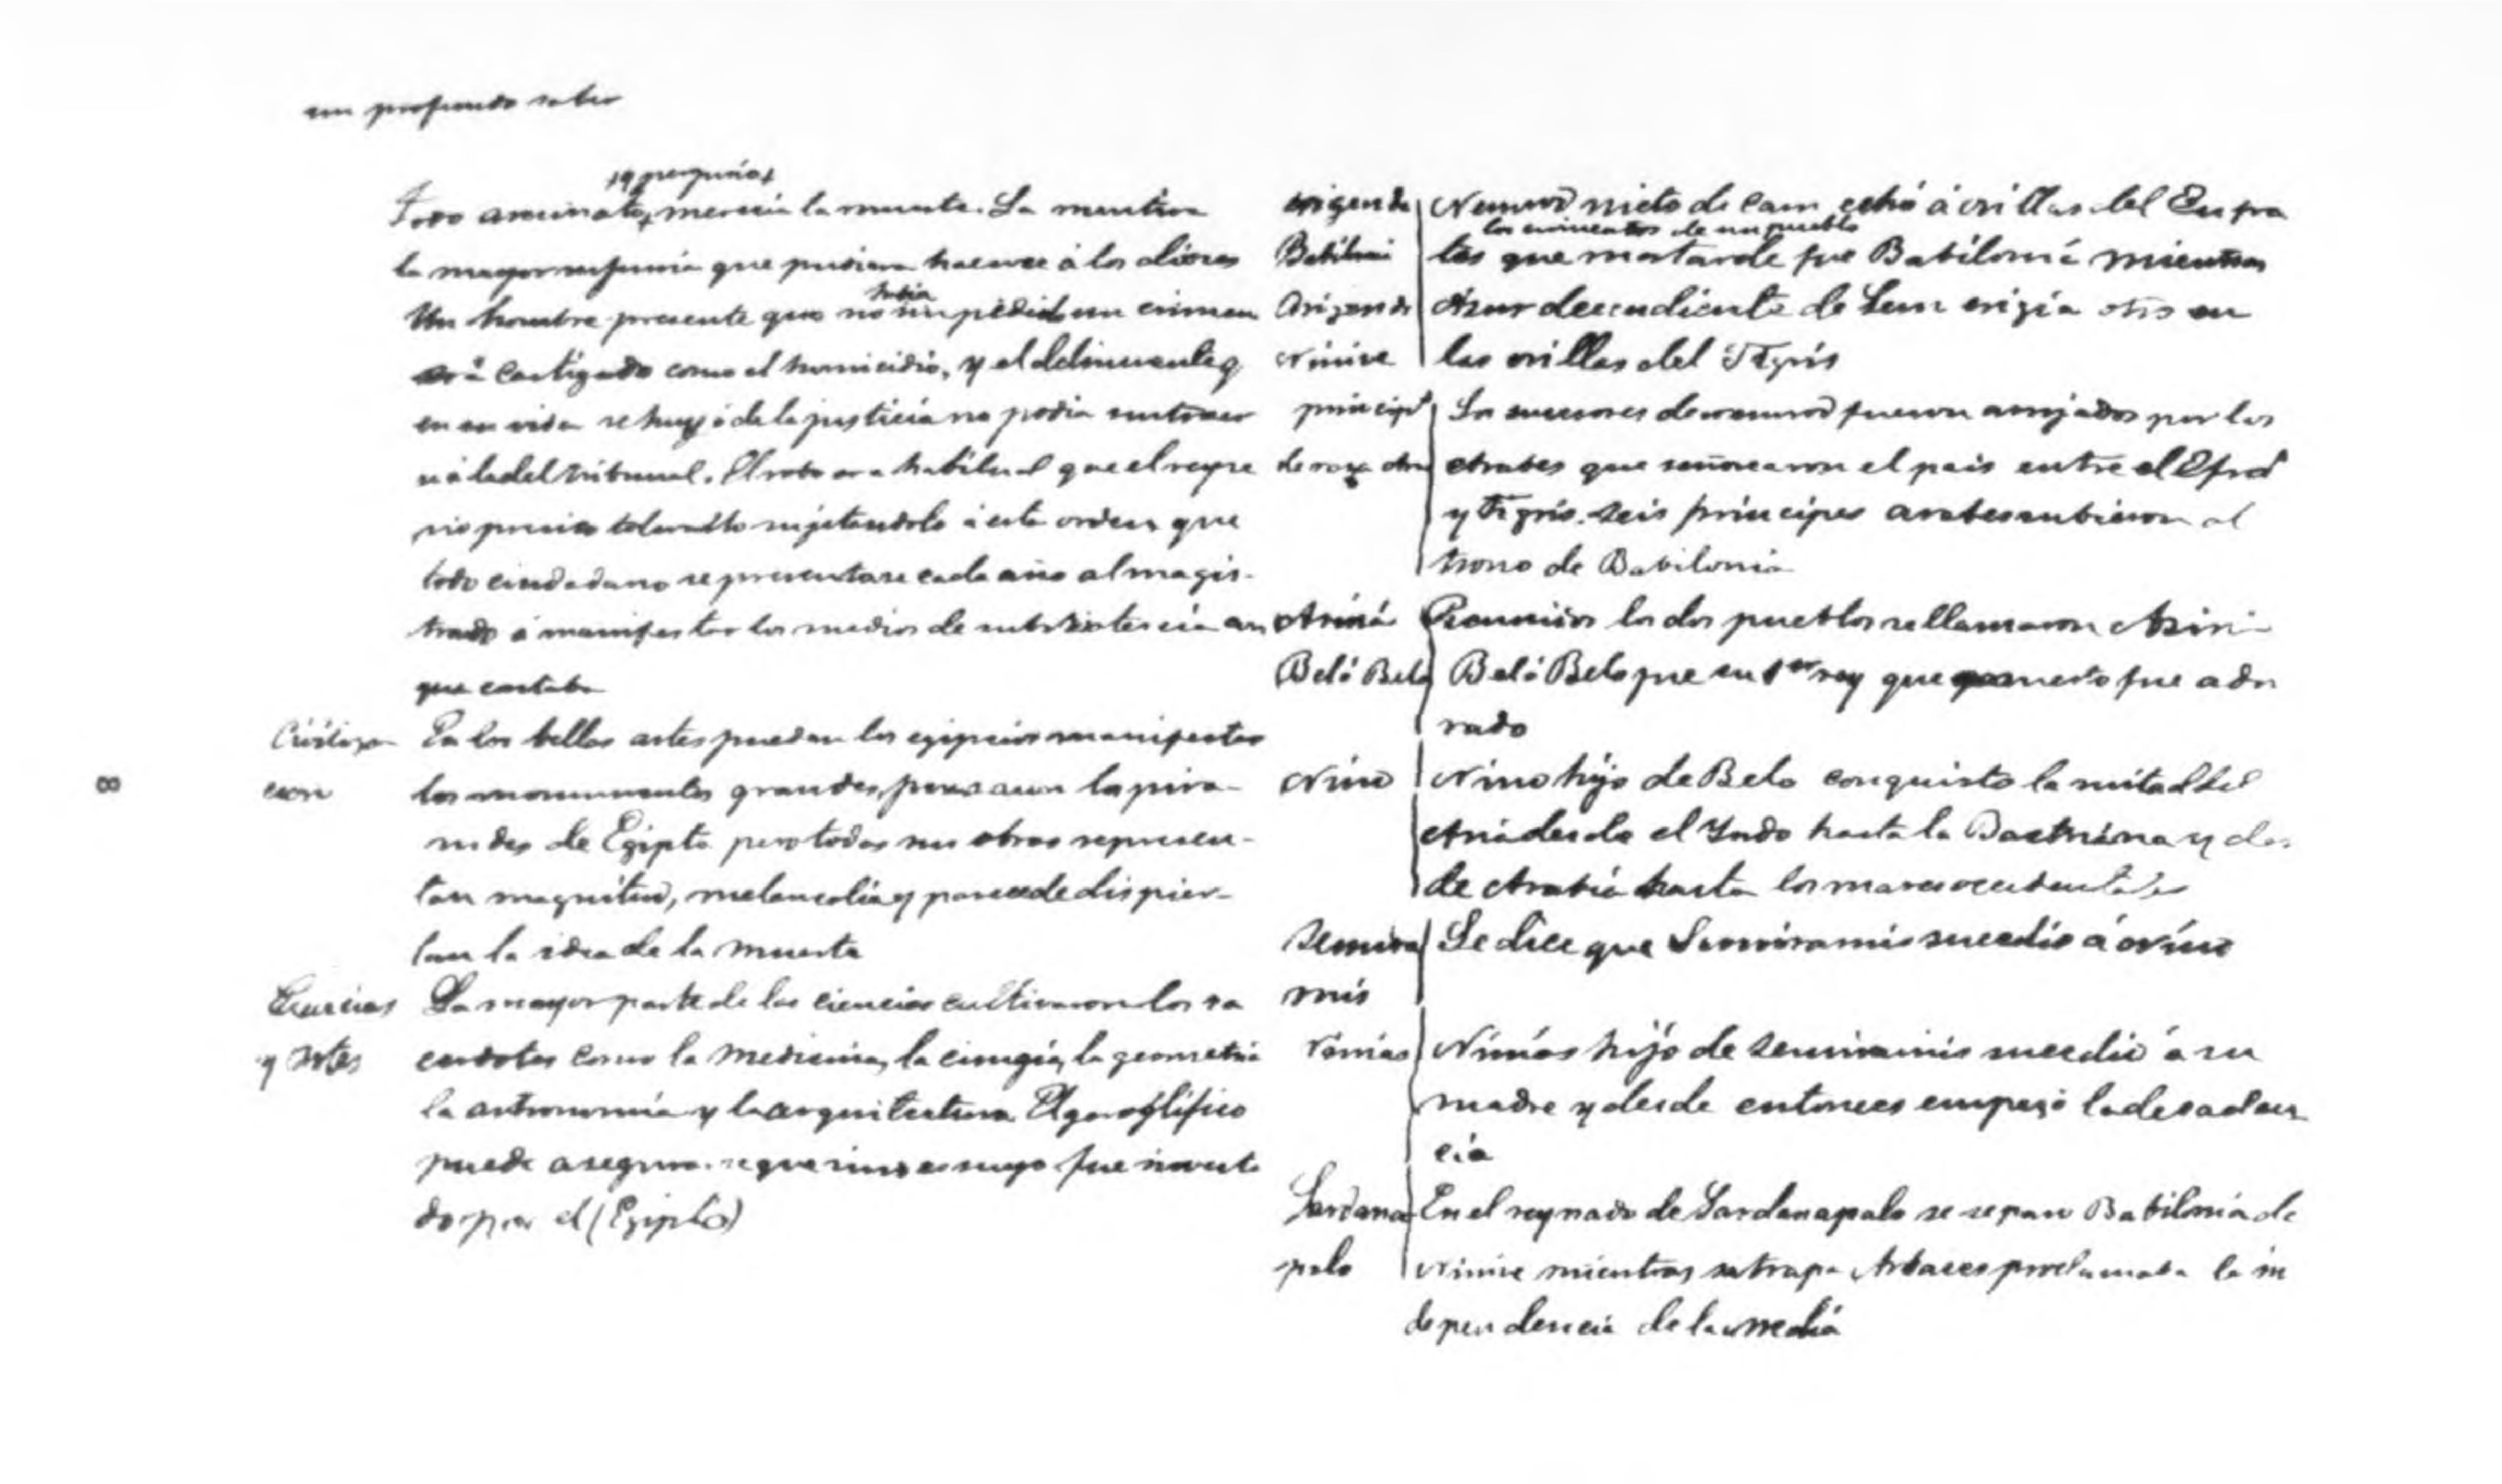 un profundo saber
y q perjurio
Todo asesinato merecia la muerte. La mentira
la mayor injuria que pudiera hacerse á los dioses
habia
Un hombre presente que no impedido un crimen
será castigado como el homicidio, y el delincuente q
en su vida se huyó de la justicia no podia
á la del tribunal. El robo era habitual que el
preciso tolerarlo sujetandolo á este orden que
todo ciudadano se presentase cada año al magis-
trado á manifestar los medios de subsistencia con
que contaba
Civiliza-
cion
En las bellas artes pueden los egipcios manifestar
los monumentos grandes, pues aun la pira-
mides de Egipto pero todas sus obras represen-
tan magnitud, melancolia y parece de dispier-
tan la idea de la muerte
Ciencias
y Artes
La mayor parte de las ciencias cultivaron los sa
cerdotes como la medicina, la cirugia, la geometria
la astronomia y la arquitectura. El geroglifico
puede asegurarse que fue inventa
do por el (Egipto)
8
origen de
Babiloni
Nemrod nieto de Cam echó á orillas del Eufra
los cimientos de un pueblo
tes que mas tarde fue Babilonia mientras
Origen de
Ninive
Asur decendiente de Sem erigia otro en
las orillas del Tigris
princip
de raza
Los sucesores de Nemrod fueron arrojados por los
Arabes que señorearon el pais entre el Efrat
y Tigris. Seis principes arabes subieron al
trono de Babilonia
Asiria
Reunidos los dos pueblos se llamaron Asiri-
Beló Belo
Beló Belo fue su 1er rey que muerto fue ado
rado
Nino
Nino hijo de Belo conquisto la mitad del
Asia desde el Yndo hasta la Bactriana y des
de Arabia hasta los mares occidentales
Semira
mis
Se dice que Semiramis sucedió á Nino
Ninias
Ninias hijo de Semiramis sucedió á su
madre y desde entonces empezó la decaden
cia
Sardana
palo
En el reynado de Sardanapalo se separo Babilonia de
Ninive mientras satrapa Arbaces proclamaba la in
dependencia de la Media